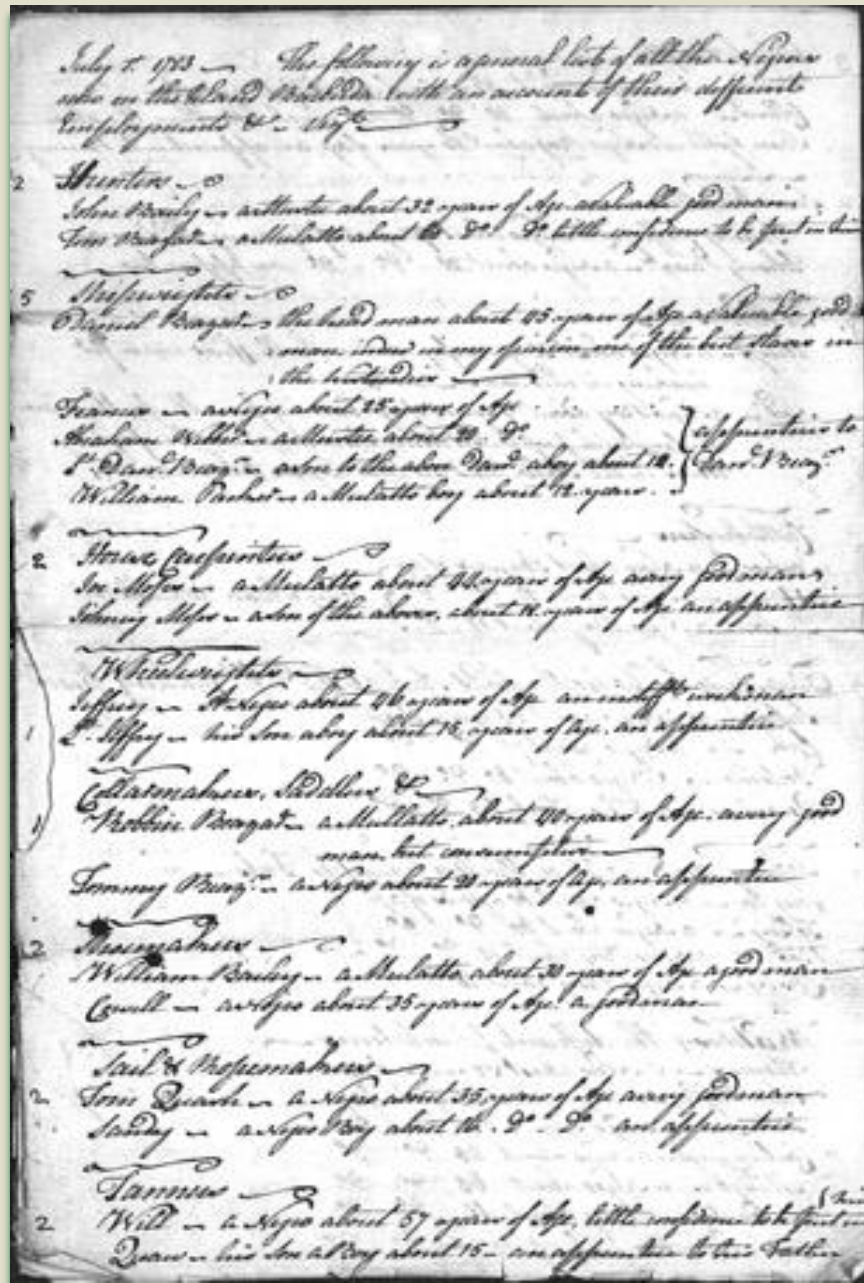 July 1783 ~ The following is a general list of all the Negroes
now on the Island Barbuda with an account of their different
Employments & ~
2 Hunters ~
John Baily ~ a Mustee about 32 years of Age a valuable good man
Tom Beazar ~ a Mulatto about Do. Do little confidence to be put in him
5 Shipwrights ~
Daniel Beazar ~ the head man about 45 years of Age a valuable good
man indeed in my opinion one of the best slaves in
the
Francis ~ a Negro about 25 years of Age
Abraham ~ a Mustee about 20 Do. apprentices to
Lt. Danl. Beazr. ~ a son to the above Danl. a boy about Danl. Beazr.
William Parker ~ a Mulatto boy about 12 years.
2 House Carpenters ~
Joe Moses ~ a Mulatto about years of Age a very good man
Johnny Moses ~ a son of the above, about years of Age an apprentice
Wheelwrights ~
Jeffrey ~ A Negro about 46 years of Age an indifft. workman
1 Lt. Jeffry ~ his son a boy about 15 years of Age. an apprentice
Collarmakers, Saddlers & ~
1 Robbin Beazar ~ a Mullatto, about 40 years of Age. a very good
man, but consumptive ~
Tommy Beazr. ~ a Negro about 20 years of Age, an apprentice
2 Shoemakers ~
William Bailey ~ a Mulatto about 30 years of Age a good man
Cowell ~ a Negro about 35 years of Age. a good man
Sail & Ropemakers ~
2 Tom Quash ~ a Negro about 35 years of Age a very good man
Sandy ~ a Negro Boy about 16. Do. Do. an apprentice
Tanners ~
2 Will ~ a Negro about 57 years of Age, little confidence to be put in him
Quaw ~ his son a Boy about 15 ~ an apprentice to his Father